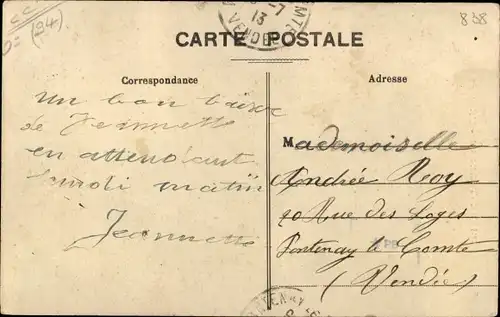 (94)
-7
13
VENDÉE
838
CARTE POSTALE
Correspondance
Adresse
un bon baiser
de Jeannette
en attendant
lundi matin
Jeannette
Mademoiselle
Andrée Roy
Rue des Loges
Fontenay le Comte
(Vendée)